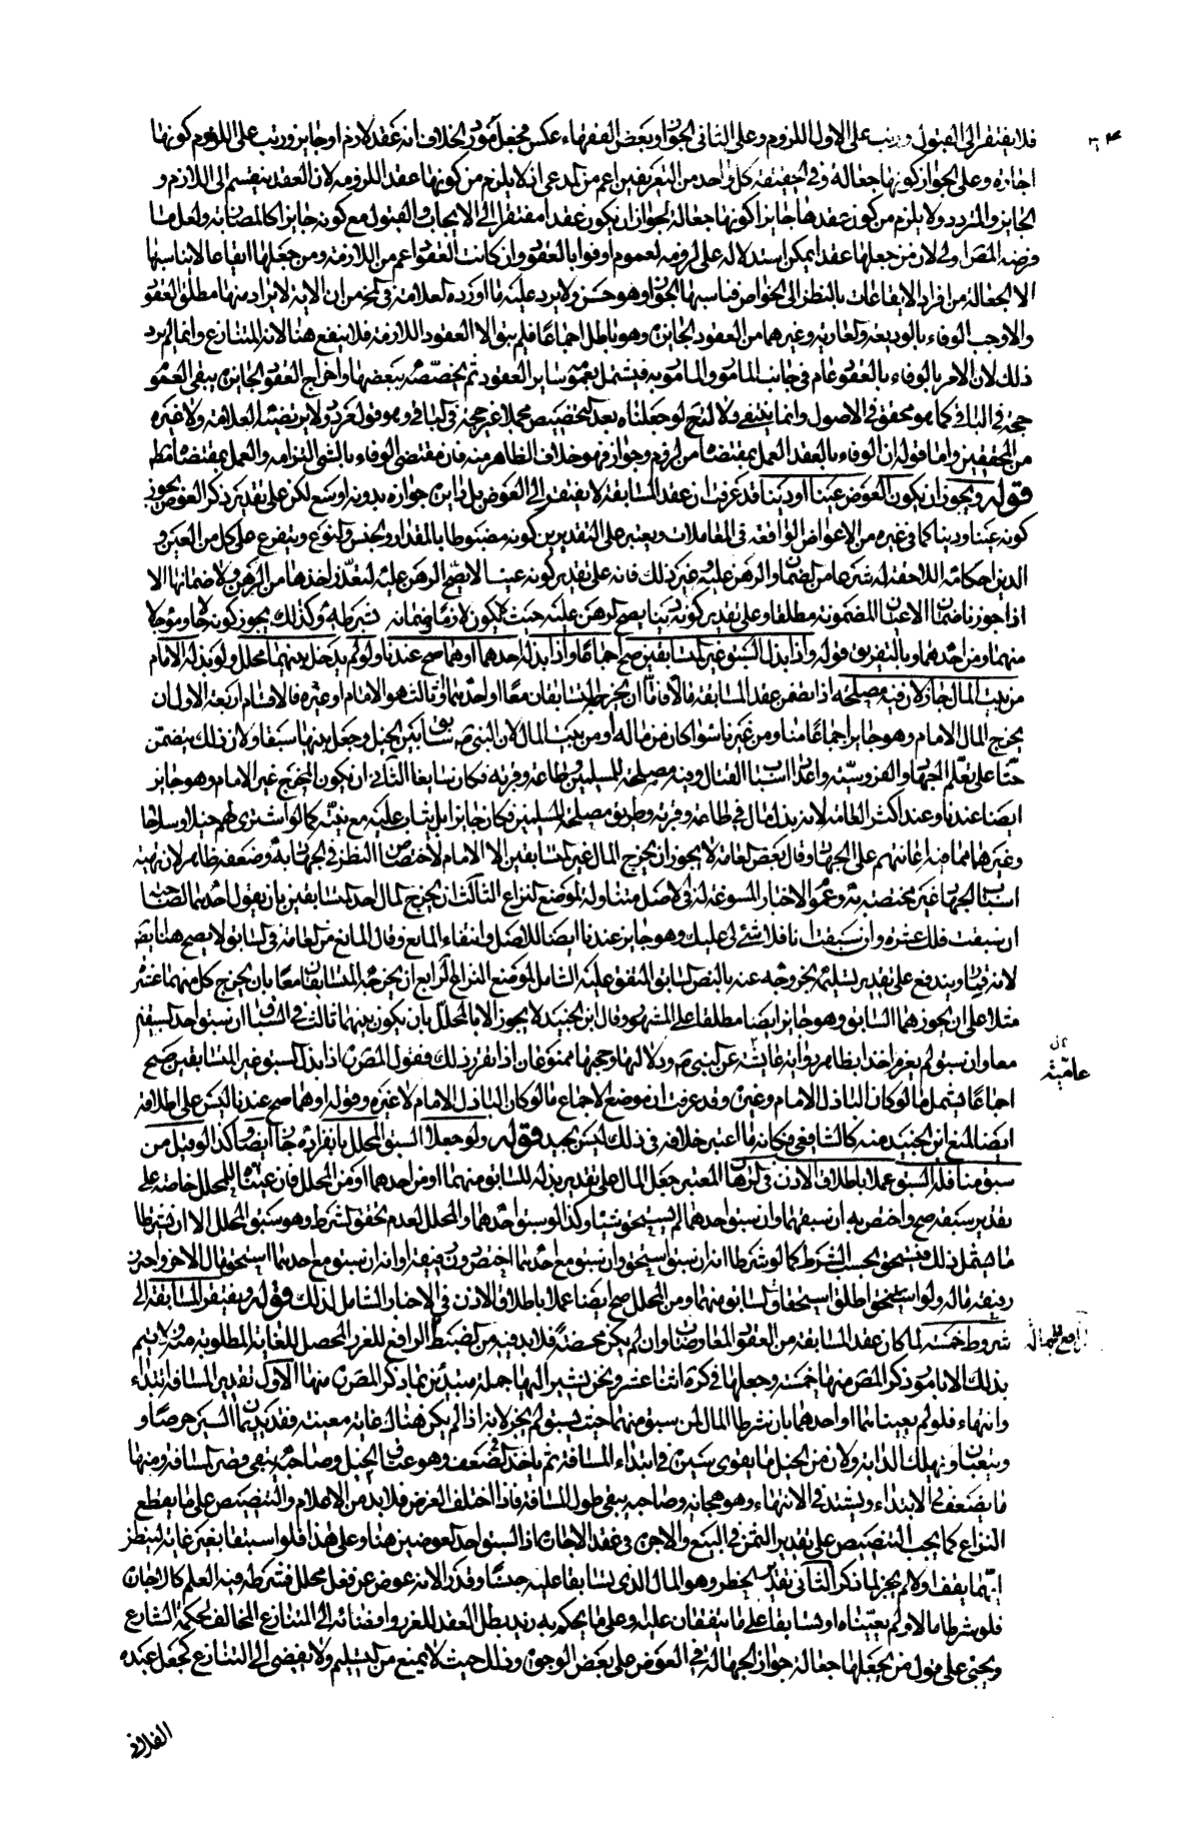 فلا يفتقر الى القبول ورتب على الاول اللزوم وعلى الثاني الجواز وبعض الفقهاء عكس فجعل مورد الخلاف انه عقد لازم او جايز ورتب على اللزوم كونها
اجارة وعلى الجواز كونها جعالة وفي الحقيقة كل واحد من التفريقين اعم من المدعى اذ لا يلزم من كونها عقدا اللزوم لان العقد ينقسم الى اللازم و
الجايز والمتردد ولا يلزم من كون عقدها جايزا كونها جعالة لجواز ان يكون عقدا مفتقرا الى الايجاب والقبول مع كونه جايزا كالمضاربة ولعل ما
فرضه المص اولى لان من جعلها عقدا يمكن استدلاله على لزومه لعموم اوفوا بالعقود وان كانت العقود اعم من اللازمة ومن جعلها ايقاعا لا يناسبها
الا الجعالة من افراد الايقاعات بالنظر الى الخواص فناسبها الجواز وهو حسن ولا يرد عليه ما اورده العلامة في لخ من ان الاية لا يراد منها مطلق العقود
والا وجب الوفاء بالوديعة والعارية وغيرهما من العقود الجايزة وهو باطل اجماعا فلم يبق الا العقود اللازمة فلا ينفع هنا لانه المتنازع وانما لم يرد
ذلك لان الامر بالوفاء بالعقود عام في جانب المامور والمامور به فيشمل بعمومه ساير العقود ثم تخصصه ببعضها واخراج العقود الجايزة يبقى العموم
حجة في الباقي كما هو محقق في الاصول وانما ينتفي دلالته لو جعلناه بعد التخصيص مجملا غير حجة في الباقي وهو قول مردود لا يرتضيه العلامة ولا غيره
من المحققين واما قوله ان الوفاء بالعقد العمل بمقتضاه من لزوم وجواز فهو خلاف الظاهر منه فان مقتضى الوفاء بالشئ التزامه والعمل بمقتضاه مطلقا
قوله ويجوز ان يكون العوض عينا او دينا قد عرفت ان عقد المسابقة لا يفتقر الى العوض بل دايرة جوازه بدونه اوسع لكن على تقدير ذكر العوض يجوز
كونه عينا ودينا كما في غيره من الاعواض الواقعة في المعاملات ويعتبر على التقديرين كونه مضبوطا بالمقدار والجنس والنوع ويتفرع على كل من العين و
الدين احكامه اللاحقة له شرعا من الضمان والرهن عليه وغير ذلك فانه على تقدير كونه عينا لا يصح الرهن عليه لتعذر اخذها من الرهن ولا ضمانها الا
اذا جوزنا ضمان الاعيان المضمونة مطلقا وعلى تقدير كونه دينا يصح الرهن عليه حيث يكون لازما وضمانه بشرطه وكذلك يجوز كونه حالا ومؤجلا
منهما ومن احدهما وبالتفريق قوله واذا بذل السبق غير المتسابقين صح اجماعا واذا بذله احدهما او هما صح عندنا ولو لم يدخل بينهما محلل ولو بذله الامام
من بيت المال جاز لان فيه مصلحة اذا تضمن عقد المسابقة مالا فاما ان يخرجه المتسابقان معا او احدهما او ثالث هو الامام او غيره فالاقسام اربعة الاول ان
يخرج المال الامام وهو جايز اجماعا منا ومن غيرنا سواء كان من ماله او من بيت المال لان النبي ص سابق بين الخيل وجعل بينها سبقا ولان ذلك يتضمن
حثا على تعلم الجهاد والفروسية واعداد اسباب القتال وفيه مصلحة للمسلمين وطاعة وقربة فكان سايغا الثاني ان يكون المخرج غير الامام وهو جايز
ايضا عندنا وعند اكثر العامة لانه بذل مال في طاعة وقربة وطريق مصلحة المسلمين فكان جايزا بل يثاب عليه مع نيته كما لو اشترى لهم خيلا وسلاحا
وغيرهما مما فيه اعانتهم على الجهاد وقال بعض العامة لا يجوز ان يخرج المال غير المتسابقين الا الامام لاختصاص النظر في الجهاد به وضعفه ظاهر لان تهيئة
اسباب الجهاد غير مختصة به وعموم الاخبار المسوغة له في الاصل متناوله لموضع النزاع الثالث ان يخرج المال احد المتسابقين بان يقول احدهما لصاحبه
ان سبقت فلك عشرة وان سبقت انا فلا شئ لي عليك وهو جايز عندنا ايضا للاصل وانتفاء المانع وقال المانع من العامة في السابق لا يصح هنا ايضا
لانه قمار ويندفع على تقدير تسليمه بخروجه عنه بالنص السابق المتفق عليه الشامل لموضع النزاع الرابع ان يخرجه المتسابقان معا بان يخرج كل منهما عشرة
مثلا على ان يحوزهما السابق وهو جايز ايضا مطلقا على المشهور وقال ابن الجنيد لا يجوز الا بالمحلل بان يكون بينهما ثالث في السباق ان سبق اخذ السبقين
معا وان سبق لم يغرم اخذا بظاهر رواية عامية عن النبي ص ودلالتها وحجتها ممنوعان اذا تقرر ذلك فقول المص اذا بذل السبق غير المتسابقين صح
اجماعا يشمل ما لو كان الباذل الامام وغيره وقد عرفت ان موضع الاجماع ما لو كان الباذل الامام لا غيره وقوله او هما صح عندنا ليس على اطلاقه
ايضا لمنع ابن الجنيد منه كالشافعي فكانه ما اعتبر خلافه في ذلك ليس بجيد قوله ولو جعلا السبق للمحلل بانفراده جاز ايضا وكذا لو قيل من
سبق منا فله السبق عملا باطلاق الاذن في الرهان المعتبر جعل المال على تقدير بذله للسابق منهما او من احدهما او من المحلل فان عيناه للمحلل خاصة على
تقدير سبقه صح واختص به ان سبقهما وان سبق احدهما لم يستحق شيئا وكذا لو سبق احدهما والمحلل لعدم تحقق الشرط وهو سبق المحلل الا ان يشرطا
ما يشمل ذلك فيستحق بحسب الشرط كما لو شرطا انه ان سبق استحق وان سبق مع احدهما اختص دون رفيقه او انه ان سبق مع احدهما استحق مال الاخر واحرز
رفيقه ماله ولو اطلق استحقاق السابق منهما ومن المحلل صح ايضا عملا باطلاق الاذن في الاخبار الشامل لذلك قوله ويفتقر المسابقة الى
شروط خمسة لما كان عقد المسابقة من العقود المعاوضات وان لم يكن محضة فلا بد فيه من الضبط الرافع للغرر المحصل للغاية المطلوبة منه ولا يتم
ذلك الا بامور ذكر المص منها خمسة وجعلها في كرة اثنا عشر ونحن نشير اليها جملة مبتدئين بما ذكر المص منها الاول تقدير المسافة ابتداء
وانتهاء فلو لم يعيناهما او احدهما بان شرطا المال لمن سبق منهما حيث يسبق لم يجز لانه اذا لم يكن هناك غاية معينة فقد يديمان السير حرصا و
ويتعبان ويهلك الدابة ولان من الخيل ما يقوى سيره في ابتداء المسافة ثم ياخذ في الضعف وهو عتاق الخيل وصاحبه يبغي قصر المسافة ومنها
ما يضعف في الابتداء ويشتد في الانتهاء وهو هجانه وصاحبه يبغي طول المسافة فاذا اختلف الغرض فلا بد من الاعلام والتنصيص على ما يقطع
النزاع كما يجب التنصيص على تقدير الثمن في البيع والاجرة في عقد الاجارة اذ السبق احد العوضين هنا وعلى هذا فلو استبقا بغير غاية لينظر
ايهما يقف اولا لم يجز لما ذكر الثاني تقدير الخطر وهو المال الذي تسابقا عليه جنسا وقدرا لانه عوض عن فعل محلل فشرطه فيه العلم كالاجارة
فلو شرطا مالا ولم يعيناه او تسابقا على ما يتفقان عليه وعلى ما يحكم به زيد بطل العقد للغرر وافضائه الى التنازع المخالف لحكمة الشارع
ويجئ على قول من يجعلها جعالة جواز الجهالة في العوض على بعض الوجوه وذلك حيث لا يمنع من التسليم ولا يفضي الى التنازع كجعل عبده
عامية
رافع للجهالة
الفلاني